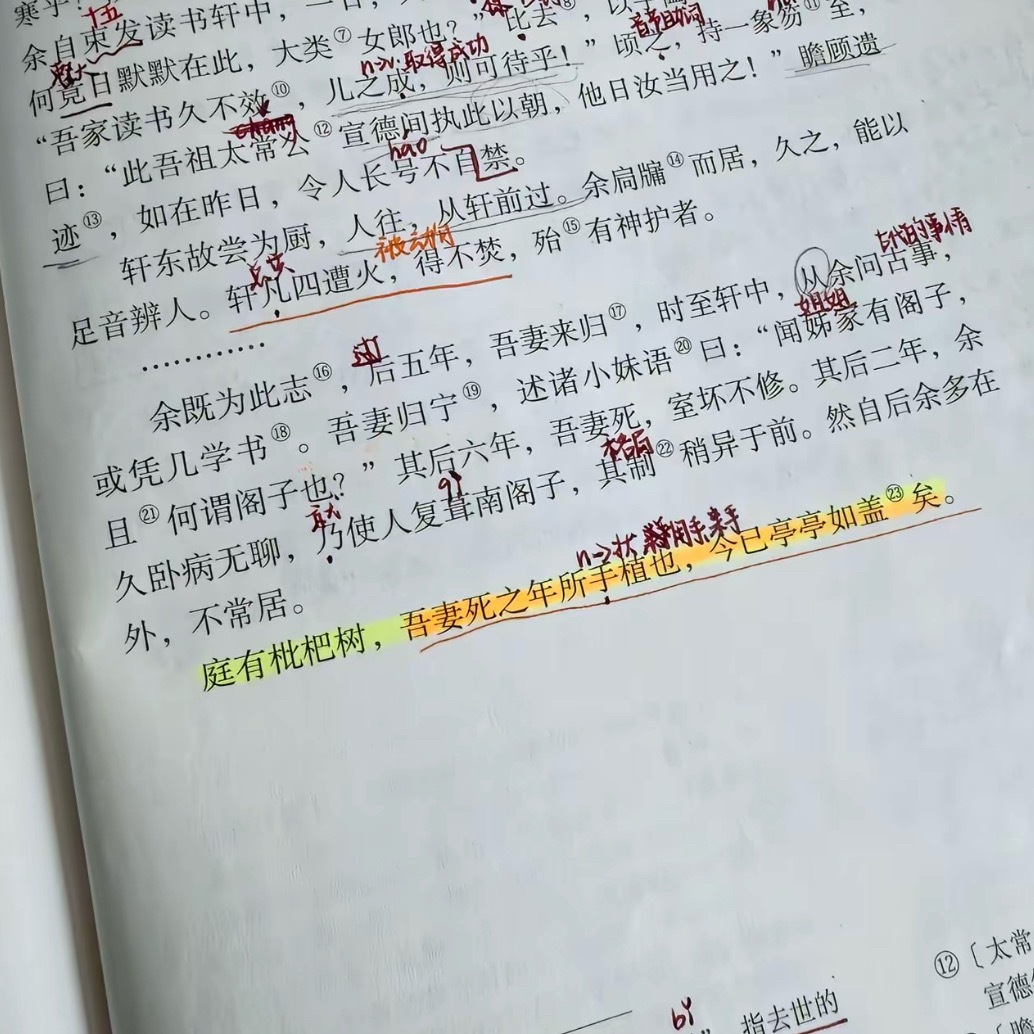 寒乎？
十五
余自束发读书轩中，一日，
大类⑦女郎也？”比去⑧，以手
何竟日默默在此，
n→v. 取得成功
“吾家读书久不效⑩，儿之成，则可待乎！”顷之，持一象笏⑪至，
曰：“此吾祖太常公⑫宣德间执此以朝，他日汝当用之！”瞻顾遗
hao
迹⑬，如在昨日，令人长号不自禁。
轩东故尝为厨，人往，从轩前过。余扃牖⑭而居，久之，能以
被动句
总共
足音辨人。轩凡四遭火，得不焚，殆⑮有神护者。
…………
古代的事情
余既为此志⑯，后五年，吾妻来归⑰，时至轩中，从余问古事，
姐姐
或凭几学书⑱。吾妻归宁⑲，述诸小妹语⑳曰：“闻姊家有阁子，
且㉑何谓阁子也？”其后六年，吾妻死，室坏不修。其后二年，余
格局
qì
久卧病无聊，乃使人复葺南阁子，其制㉒稍异于前。然自后余多在
外，不常居。
n→状 亲手
庭有枇杷树，吾妻死之年所手植也，今已亭亭如盖㉓矣。
⑫〔太常
宣德
bǐ
指去世的